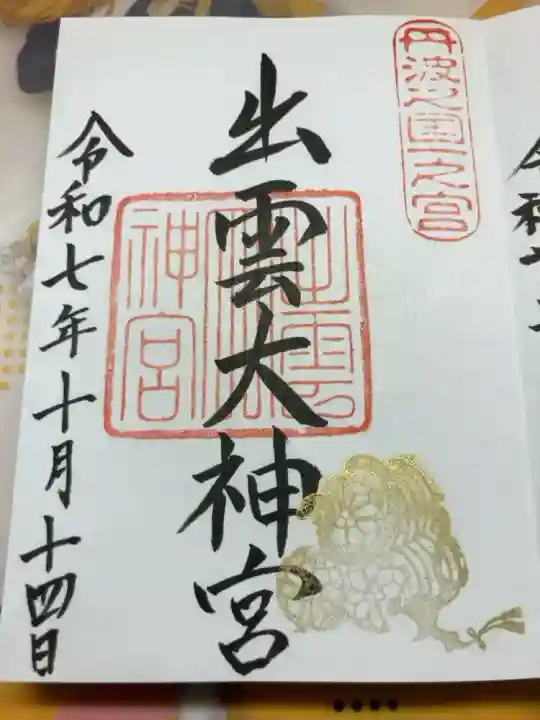 丹波之国一之宮
出雲大神宮
出雲大神宮
令和七年十月十四日
令和七